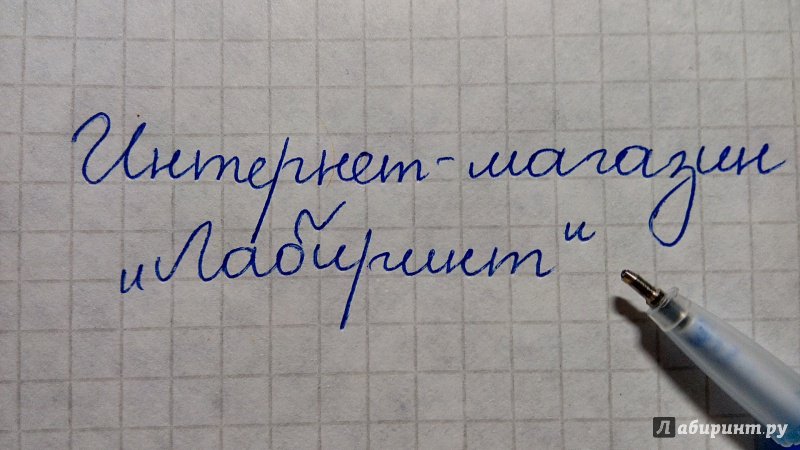 Интернет-магазин
„Лабиринт“
Лабиринт.ру